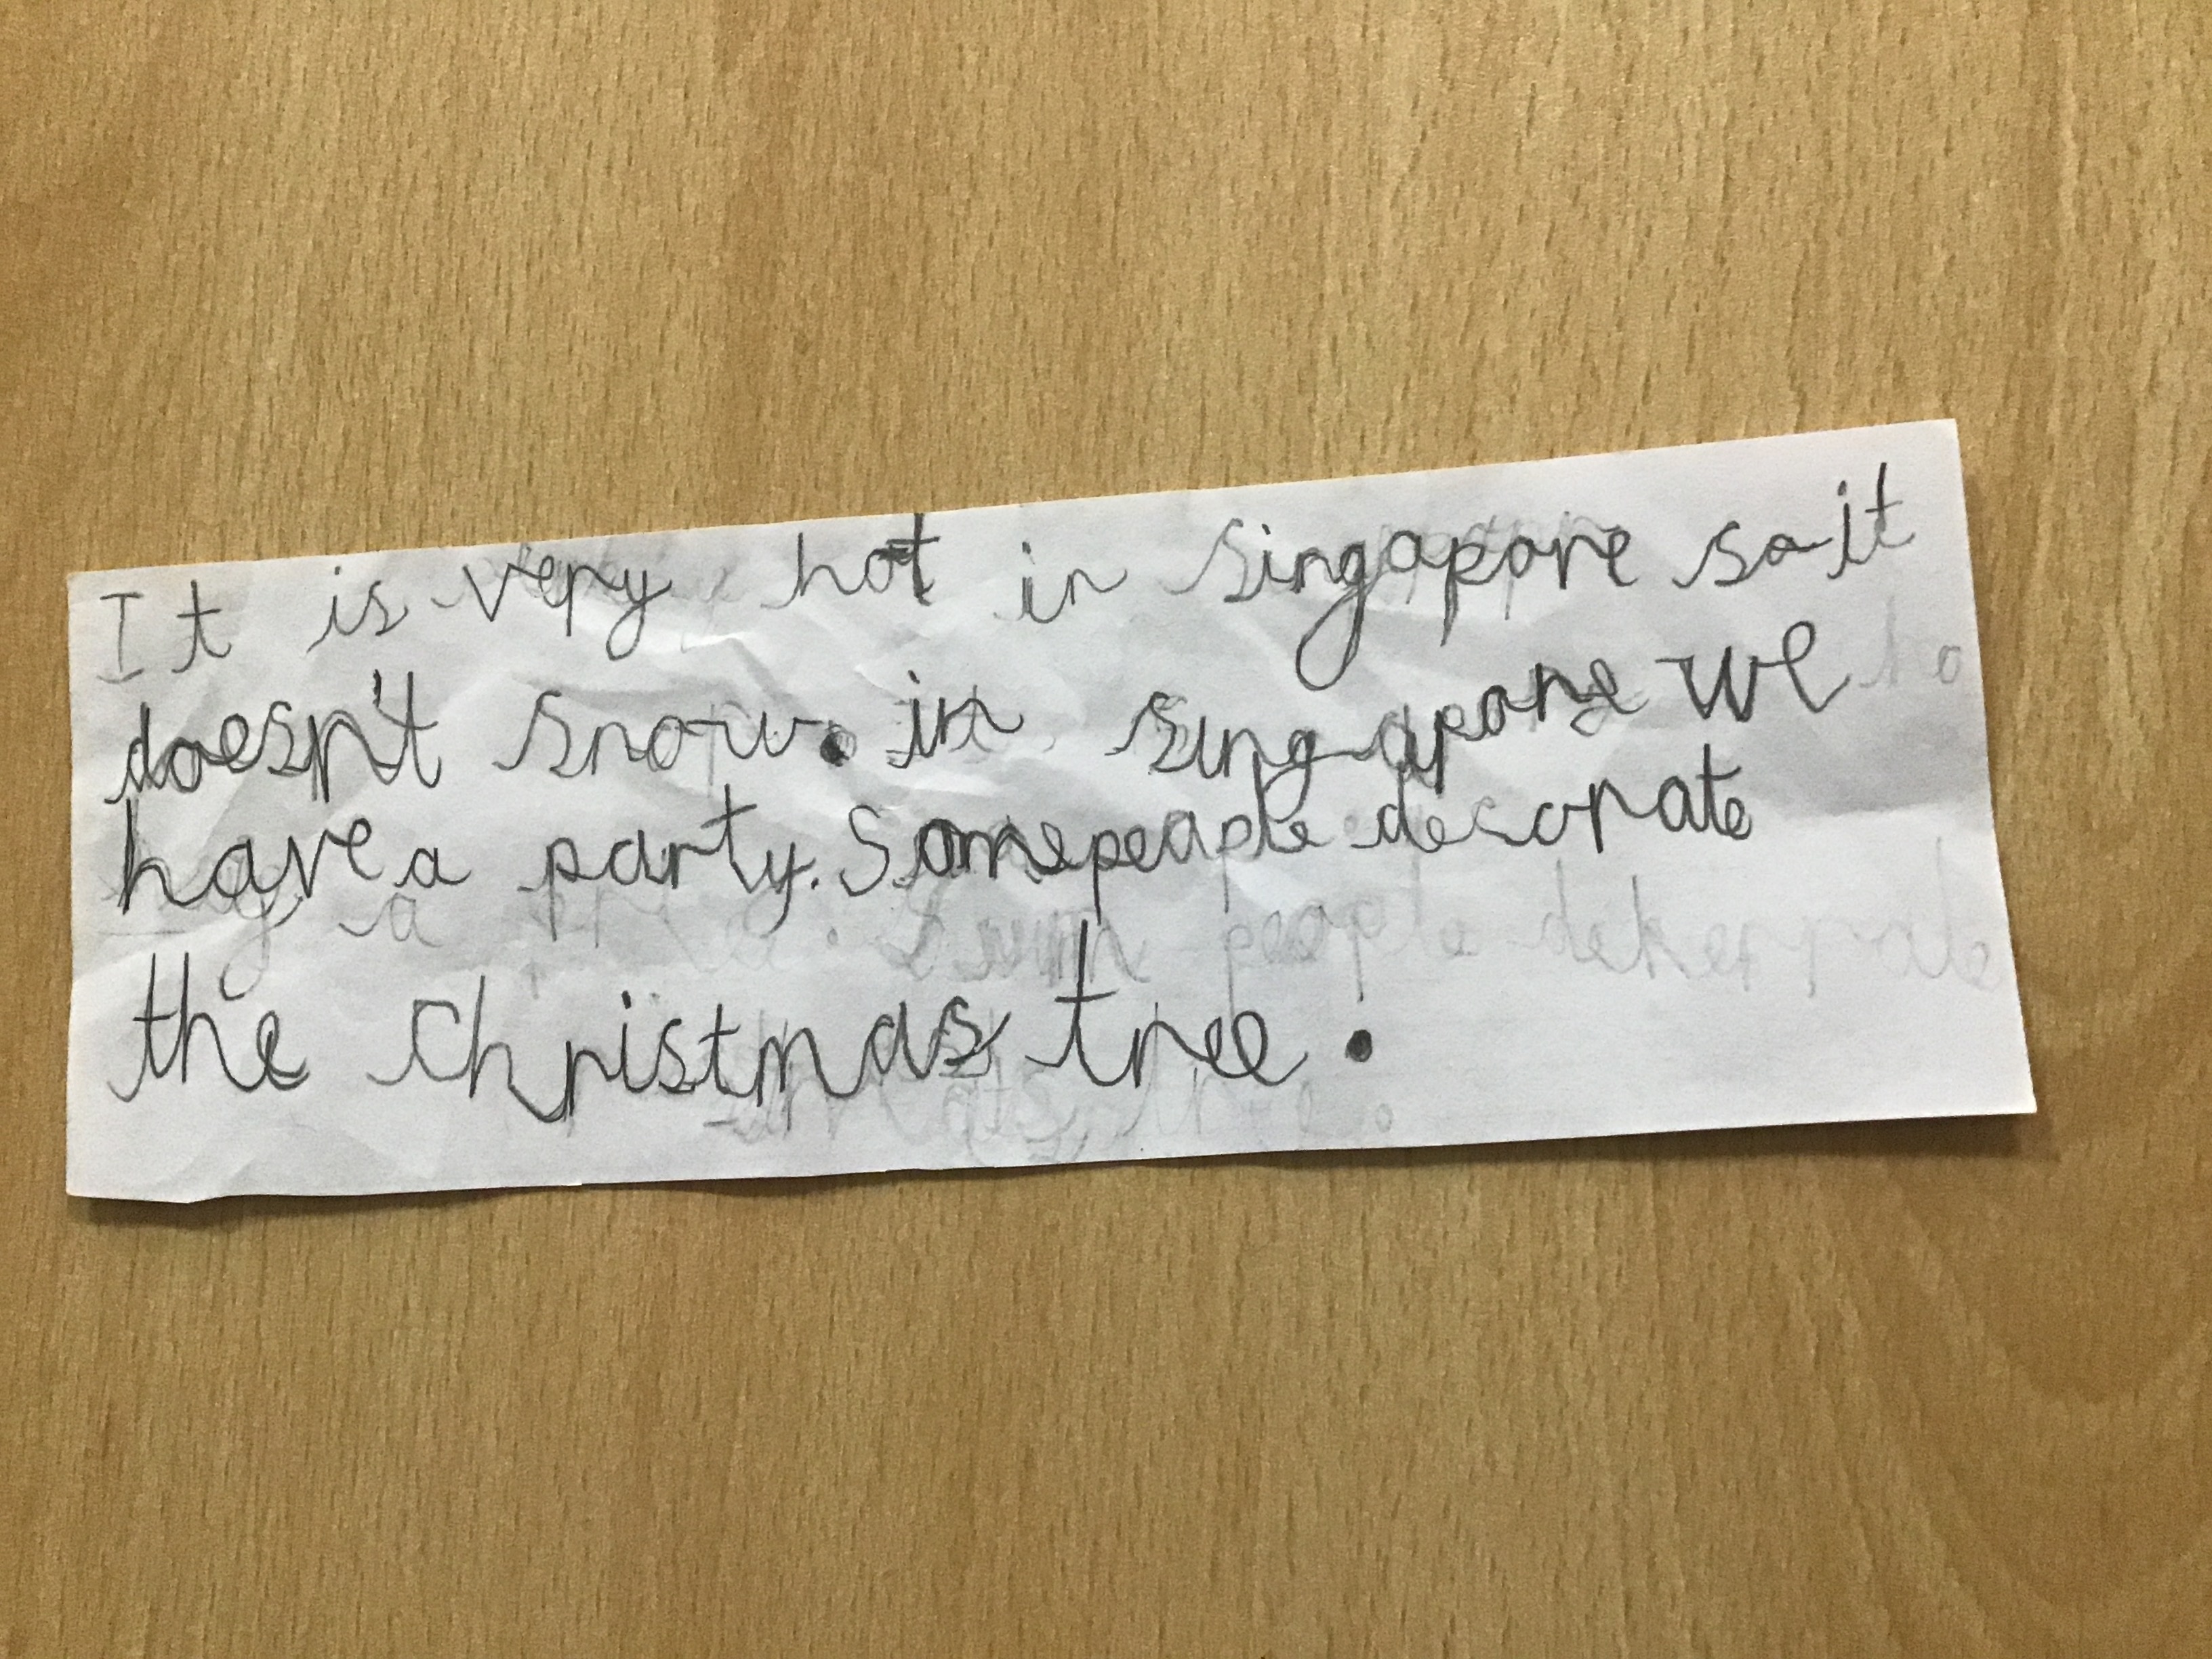 It is very hot in Singapore so it
doesn't snow. in singapore we
have a party. Some people decorate
the Christmas tree.